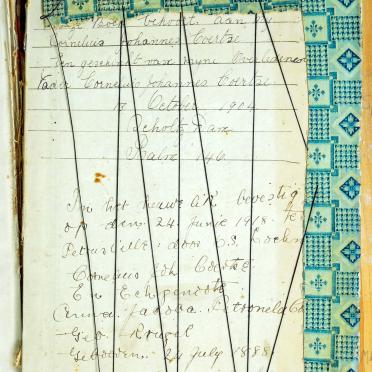 Boek behoort aan my
Cornelius Johannes Coertze
Een geschenk van myne Overledenen
Vader Cornelius Johannes Coertze
October 1904
Psalm 146
In het huwelik bevestig
op den 24 Junie 1918 te
Petrusville door Ds.
Cornelius Joh Coertze
En Echgenoote
Anna Jacoba Petronela Co
Geb. Kruger
Geboren 24 July 1888